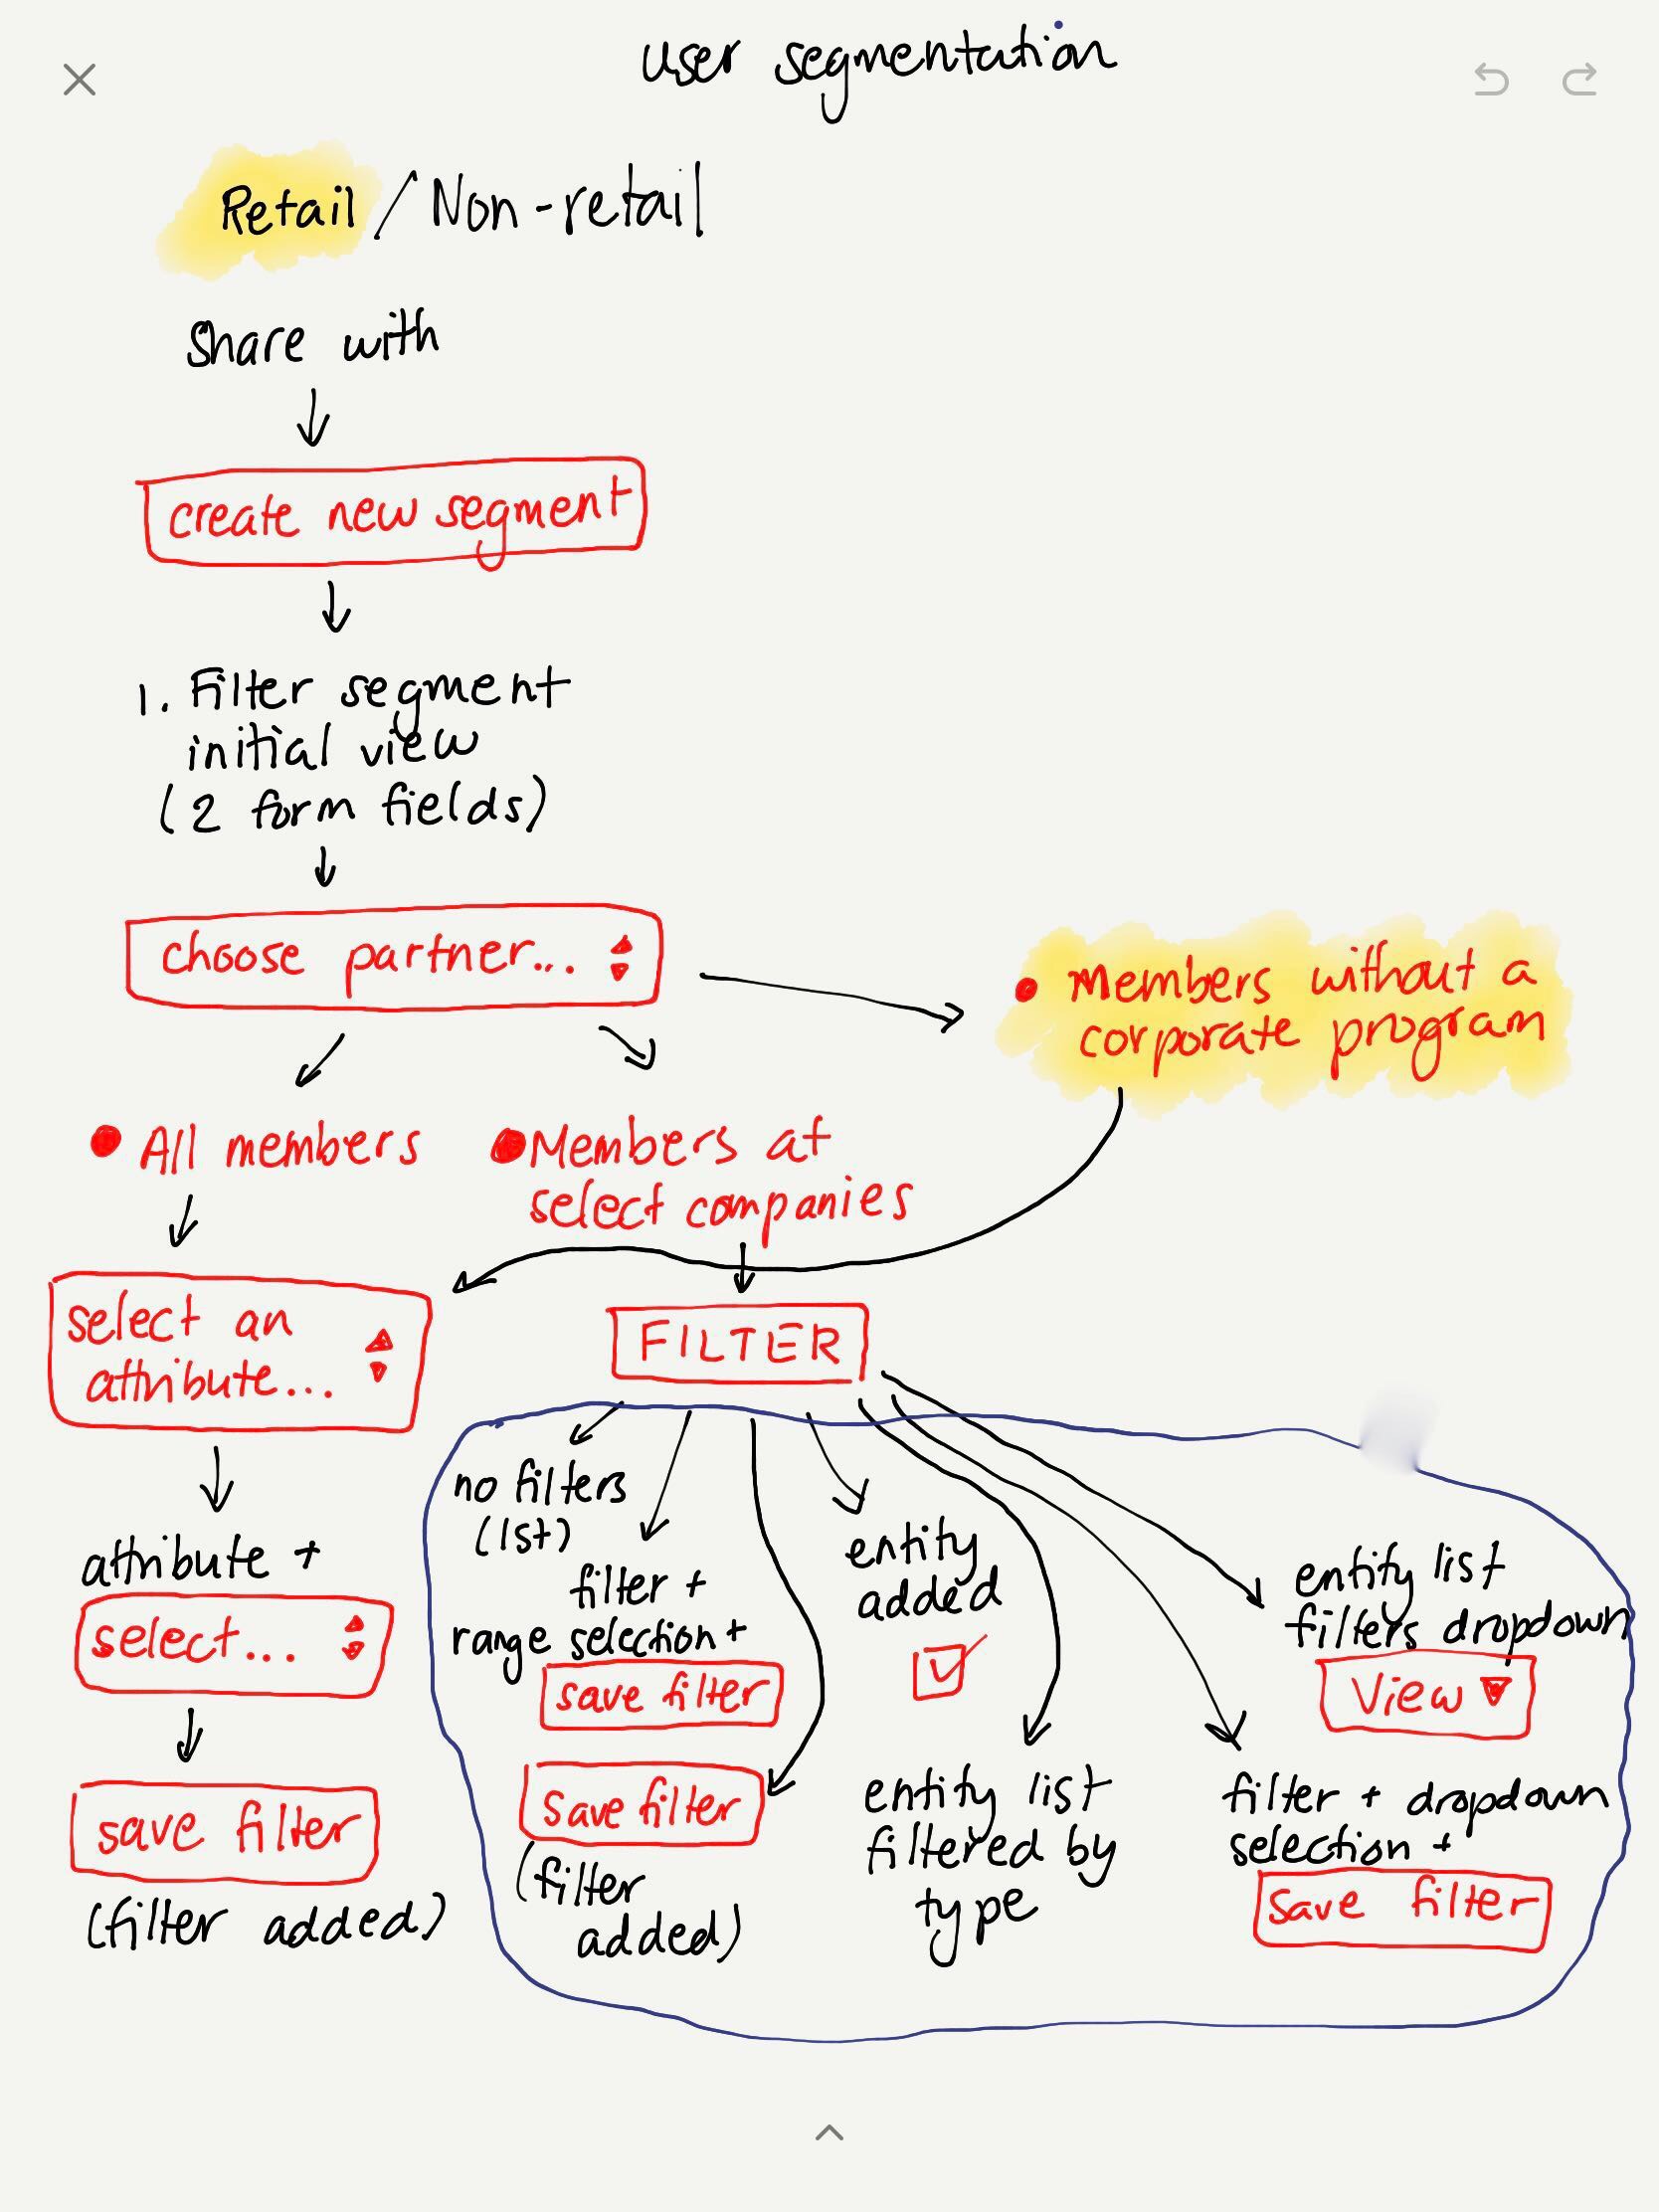 user segmentation
Retail / Non-retail
Share with
create new segment
1. Filter segment
initial view
(2 form fields)
choose partner...
• Members without a
corporate program
• All members
• Members at
select companies
select an
attribute...
FILTER
attribute +
select...
save filter
(filter added)
no filters
(1st)
filter +
range selection +
save filter
save filter
(filter
added)
entity
added
entity list
filtered by
type
entity list
filters dropdown
View
filter + dropdown
selection +
save filter